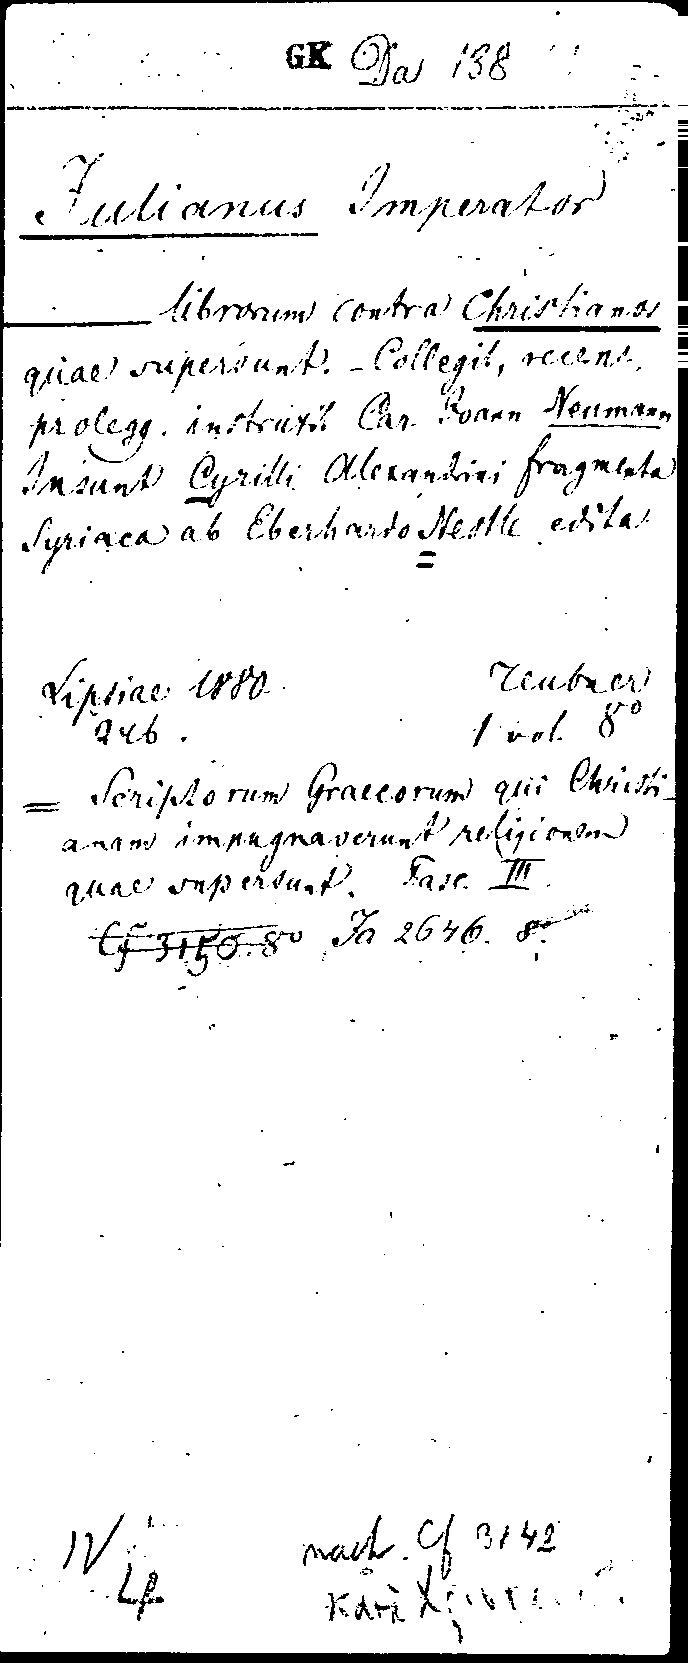 GK Da 138
Julianus Imperator
librorum contra Christianos
quae supersunt. - Collegit, recens,
prolegg. instruxit Car Joann Neumann
Insunt Cyrilli Alexandrini fragmenta
Syriaca ab Eberhardo Nestle edita
Lipsiae 1880 Teubner
246. 1 vol. 8°
= Scriptorum Graecorum qui Christi-
anam impugnaverunt religionem
quae supersunt. Fasc. III.
Cf 3150.8° Ja 2646. 8°.
IV nach. Cf 3142
Lp κατὰ